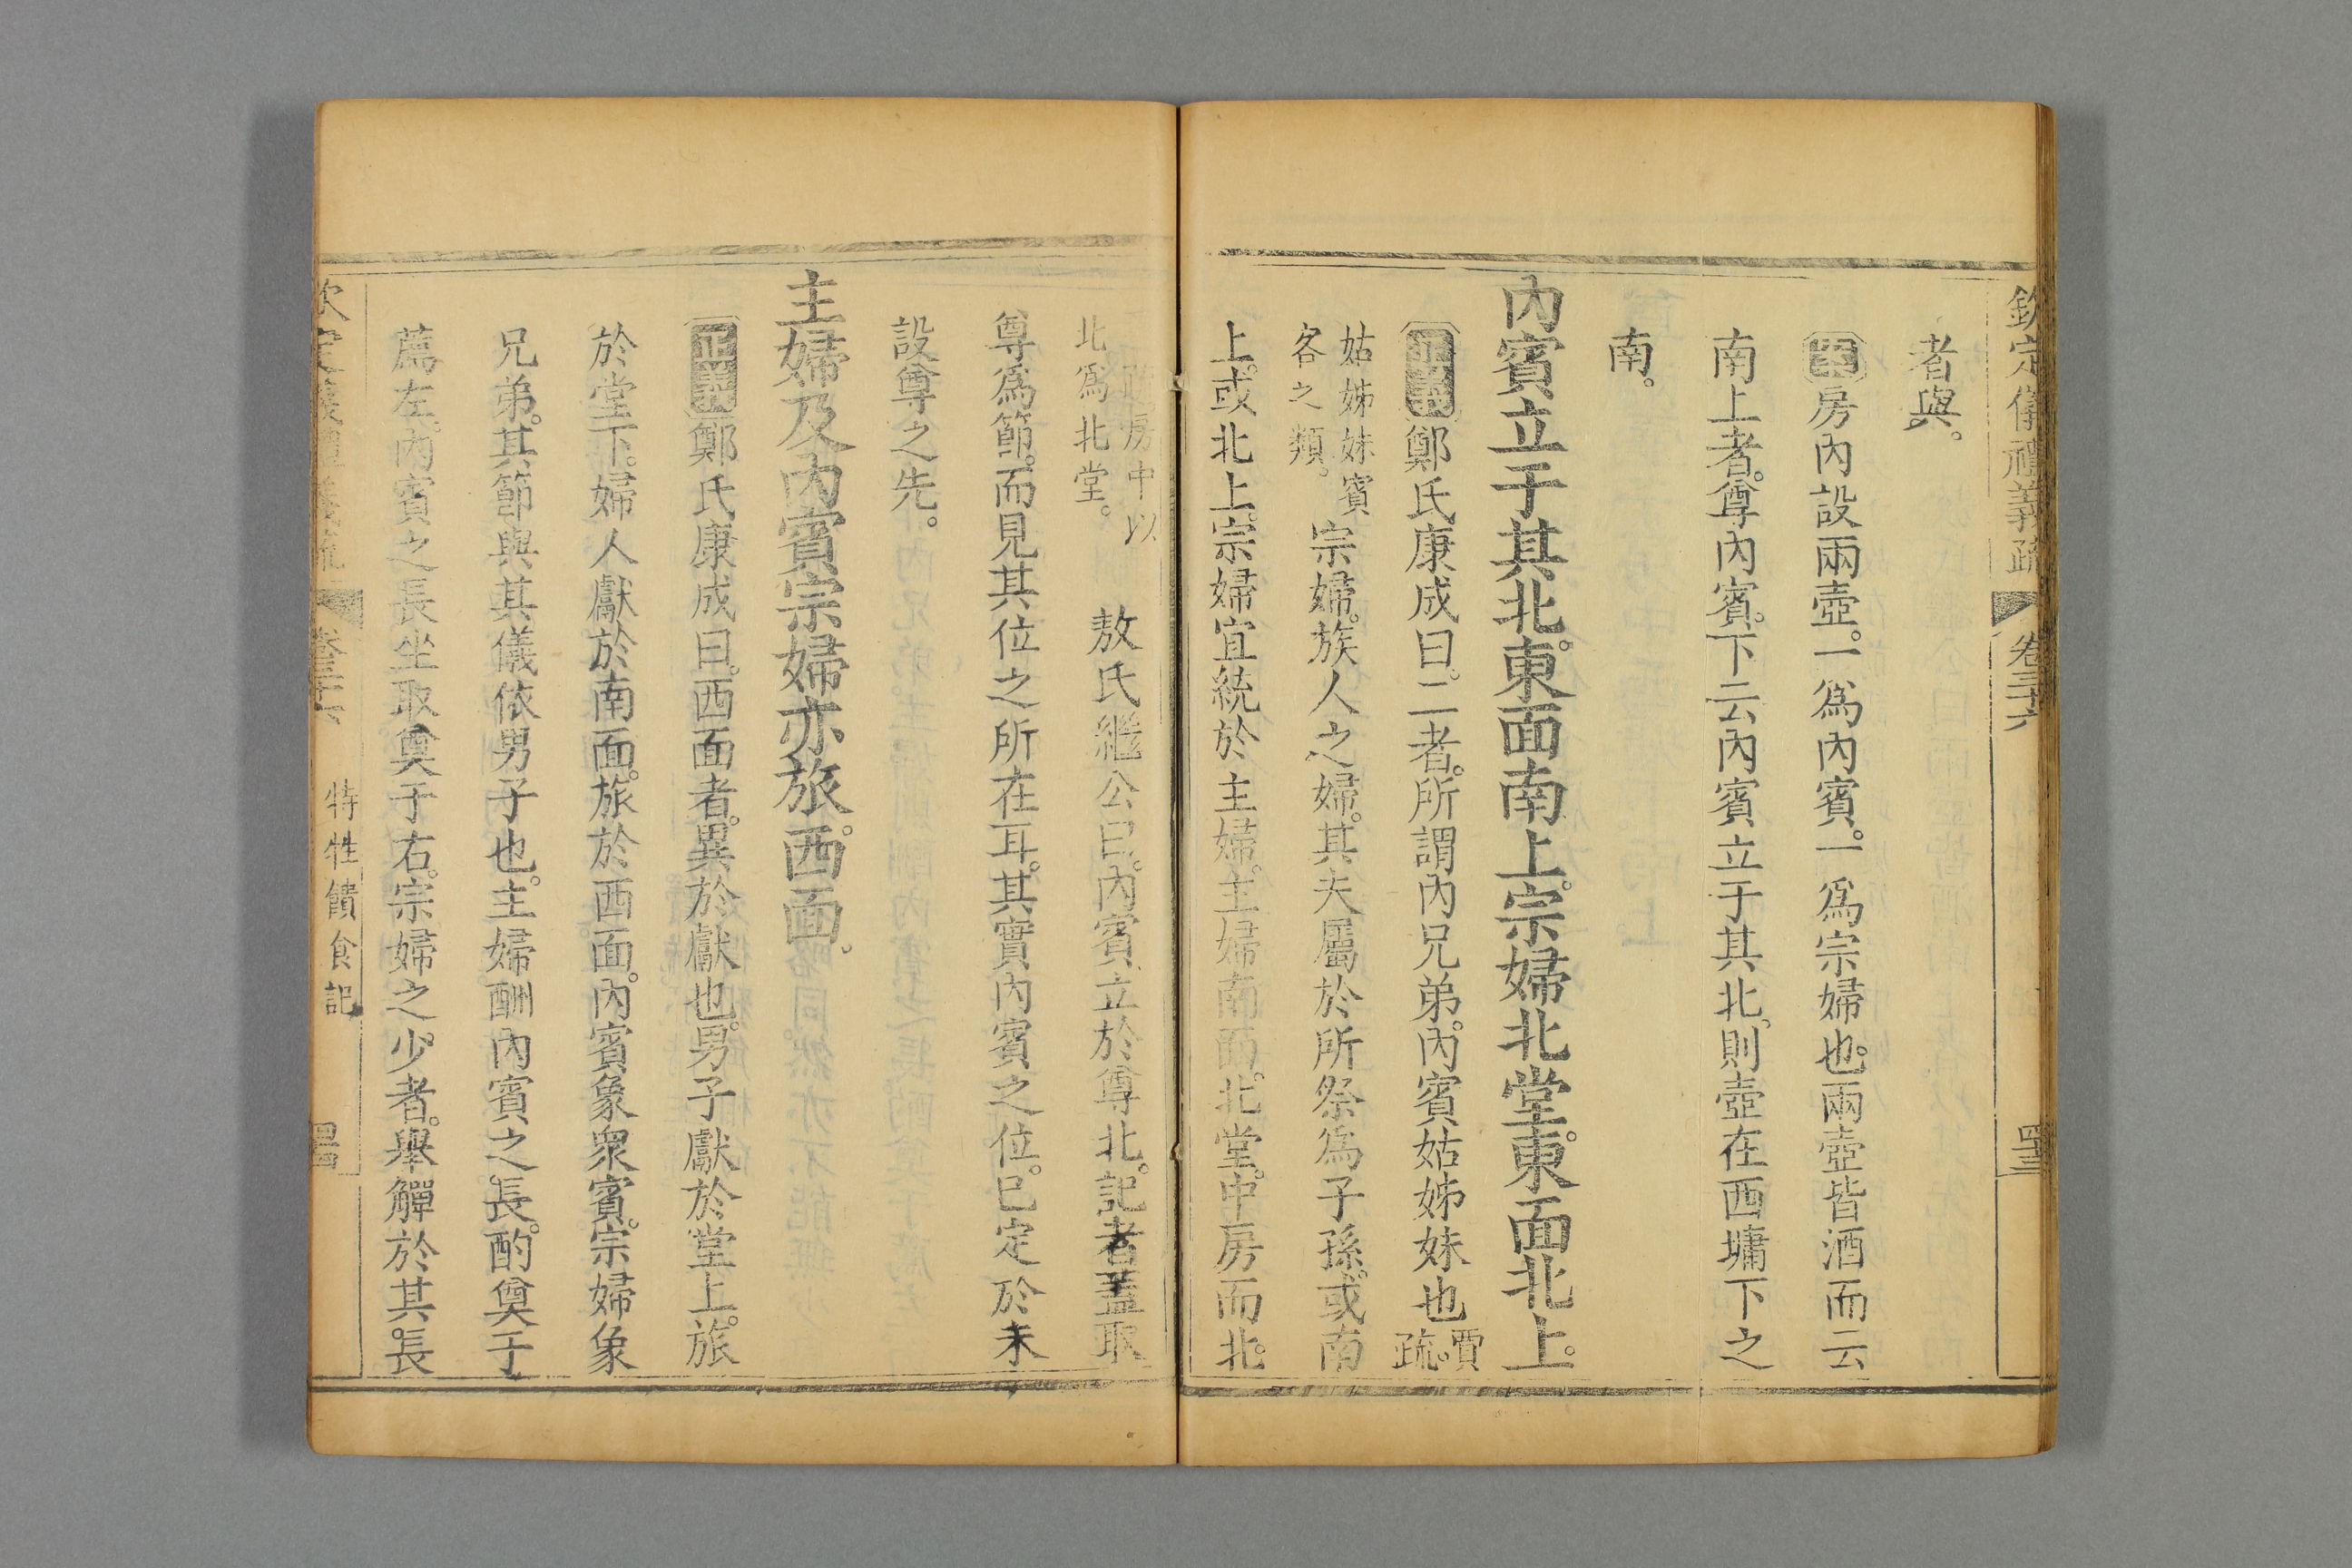 欽定儀禮義疏 卷三十六
者與。
案房內設兩壺。一爲內賓。一爲宗婦也。兩壺皆酒而云
南上者。尊內賓。下云內賓立于其北、則壺在西墉下之
南。
內賓立于其北。東面南上。宗婦北堂。東面北上。
正義鄭氏康成曰。二者。所謂內兄弟。內賓姑姊妹也賈疏。
姑姊妹賓客之類。宗婦。族人之婦。其夫屬於所祭爲子孫。或南
上。或北上。宗婦宜統於主婦。主婦南面。北堂。中房而北。
房中以北爲北堂。 敖氏繼公曰。內賓立於尊北。記者蓋取
尊爲節。而見其位之所在耳。其實內賓之位。已定於未
設尊之先。
主婦及內賓宗婦亦旅。西面。
正義鄭氏康成曰。西面者。異於獻也。男子獻於堂上。旅
於堂下。婦人獻於南面。旅於西面。內賓象衆賓。宗婦象
兄弟。其節與其儀依男子也。主婦酬內賓之長。酌奠于
薦左。內賓之長坐取奠于右。宗婦之少者。舉觶於其長
特牲饋食記